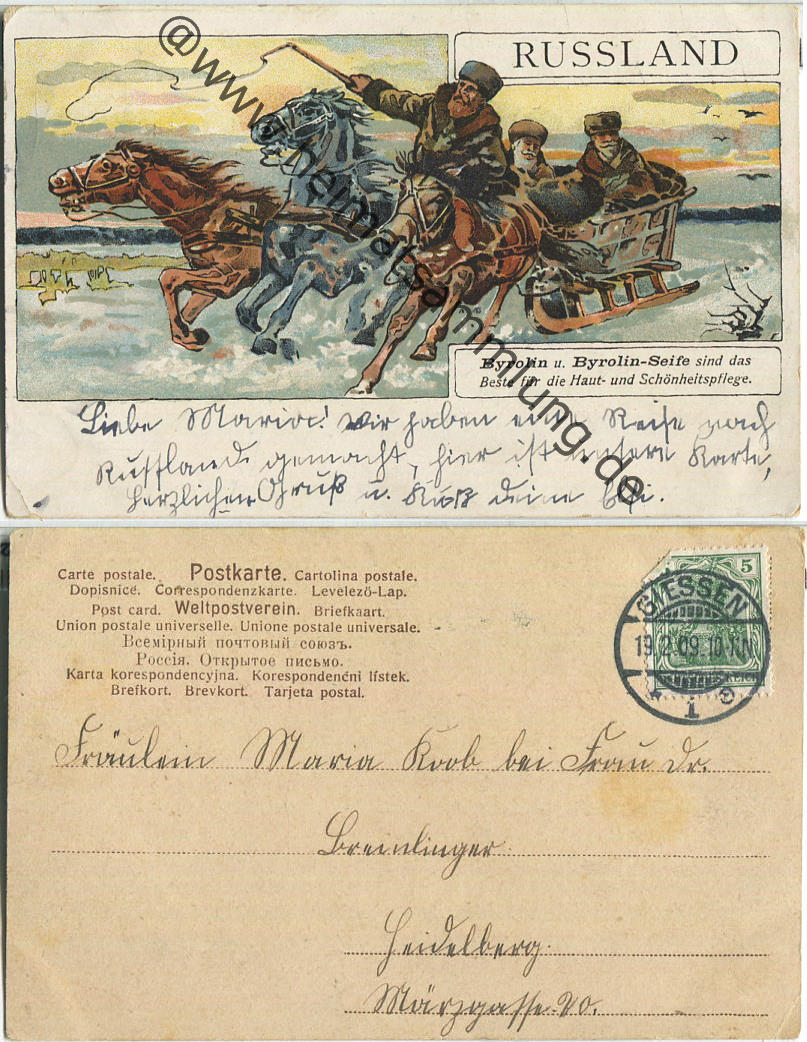 RUSSLAND
Byrolin u. Byrolin-Seife sind das
Beste für die Haut- und Schönheitspflege.
Liebe Maria! Wir haben eine Reise nach
Russland gemacht, hier ist unsere Karte,
herzlichen Gruß u. Kuß deine
@www.heimatsammlung.de
Carte postale. Postkarte. Cartolina postale.
Dopisnicé. Correspondenzkarte. Levelezö-Lap.
Post card. Weltpostverein. Briefkaart.
Union postale universelle. Unione postale universale.
Всемірный почтовый союзъ.
Россія. Открытое письмо.
Karta korespondencyjna. Korespondenčni lístek.
Brefkort. Brevkort. Tarjeta postal.
5
GIESSEN
19.2.09.10-11N
REICH
1
Fräulein Maria Koob bei Frau Dr.
Breinlinger.
Heidelberg.
Märzgasse 20.